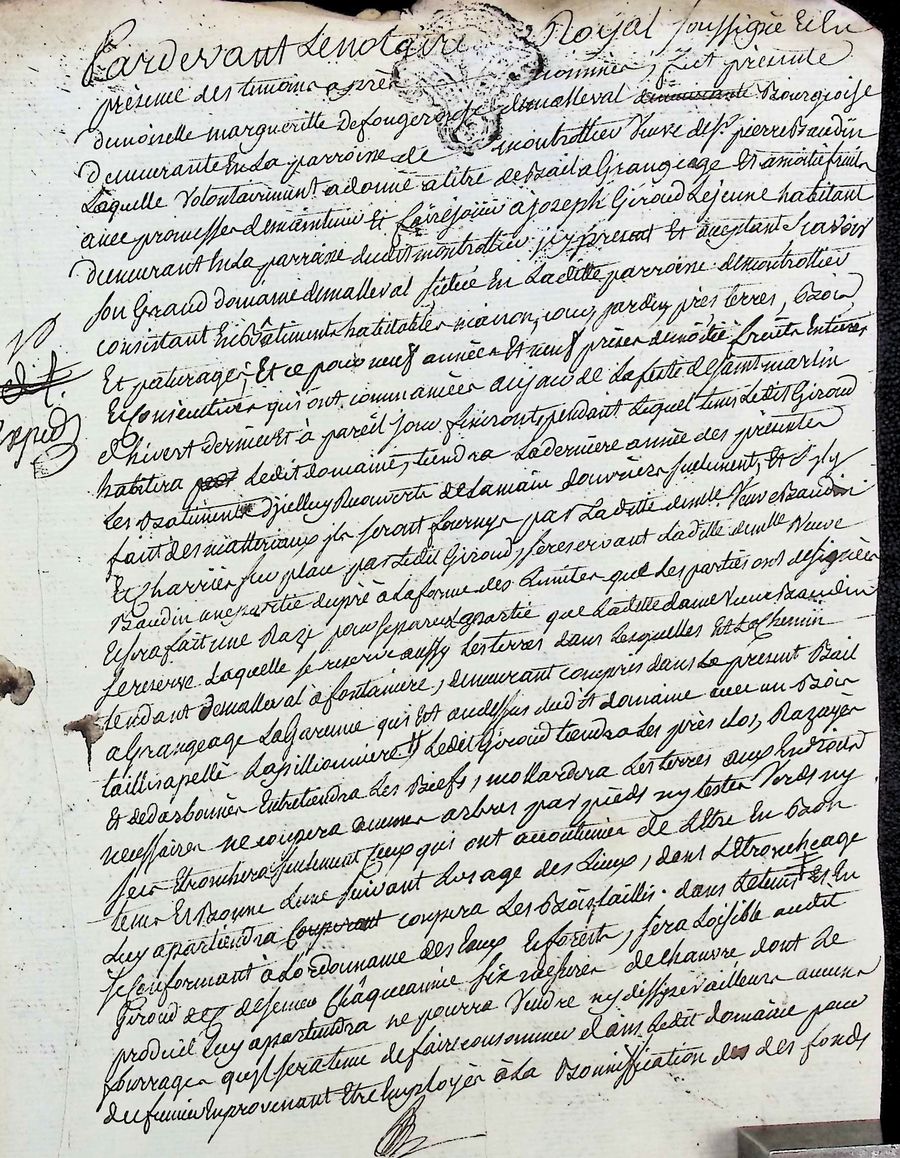 Pardevant Le notaire Royal soussigné Et En
présence des temoins après nommés, fut présente
demoiselle margueritte Defougerouse demalleval demeurante Bourgeoise
demeurante En La parroisse de montrottier Veuve de Sr. pierre Baudin
Laquelle Volontairement a donné a titre de Bail a Grangeage Et amoitié fruits
avec promesse demaintenir Et faire jouir a joseph Giroud Lejeune habitant
demeurant En La parroisse dudit montrottier jcy present Et aceptant Scavoir
son Grand domaine demalleval scitué En Laditte parroisse demontrottier
consistant En Batiments habitables maison, cour, jardin, près terres, Bois
Et paturages, Et ce pour neuf années Et neuf prises demoitié fruits Entieres
Et Consécutives qui ont commancées aujour de La feste de Saint martin
d'hivert dernier Et à pareil jour finiront, pendant Lequel tems Ledit Giroud
habitera Ledit domaine, tiendra La dernière année des présentes
Les Batiments d'jcelluy Recouverts de La main d'ouvriers seulement, Et S'jl y
faut des matteriaux jls seront fournys par Laditte demlle Veuve Baudin
Et Charriés sur place par Ledit Giroud, se reservant Laditte demlle Veuve
Baudin une partie du pré à La forme des Limites que Les parties ont designées
Et sera fait une Raze pour separer La partie que Laditte dame Veuve Baudin
se reserve Laquelle se reserve aussy Les terres dans Lesquelles Est Le Chemin
tendant demalleval à fontaniere, demeurant compris dans Le présent Bail
a Grangeage La Garenne qui Est audessus dudit domaine avec un Bois
taillis apellé Lapillionniere, Ledit Giroud tiendra Les près clos, Razayés
Et dedarbonnés Entretiendra Les Biefs, mollardera Les terres aux Endroits
necessaires ne coupera aucuns arbres par pieds ny testes Verds ny
secs Etronchera seulement Ceux qui ont accoutumés de L'être En Bon
tems Et Bonne Lune suivant L'usage des Lieux, dont L'Etronchage
Luy apartiendra coupera Les Bois taillis dans Le tems Et En
se Conformant à L'ordonnance des Eaux Et forests, sera Loisible audit
Giroud de semer Chaque année six mesures de Chanvre dont Le
produit Luy apartiendra ne pourra Vendre ny dissiper ailleurs aucuns
fourrages qu'jl sera tenu de faire consommer dans Ledit domaine pour
Le fumier En provenant Etre Employés à La Bonniffication des fonds